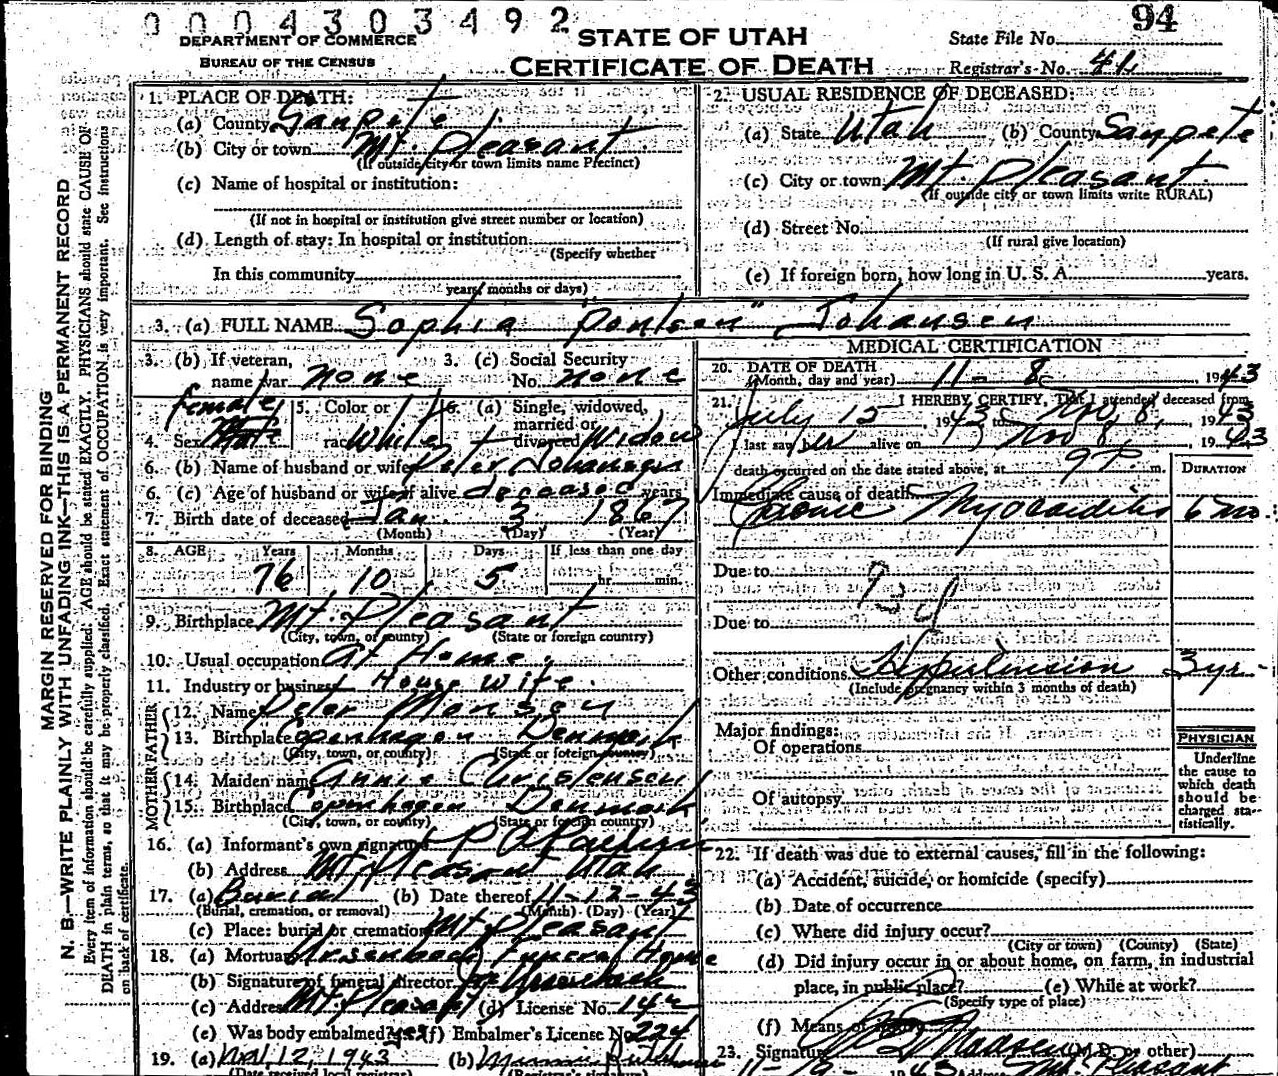 0004303492
94
DEPARTMENT OF COMMERCE
BUREAU OF THE CENSUS
STATE OF UTAH
CERTIFICATE OF DEATH
State File No.
Registrar's No.
MARGIN RESERVED FOR BINDING
N. B.—WRITE PLAINLY WITH UNFADING INK—THIS IS A PERMANENT RECORD
Every item of information should be carefully supplied. AGE should be stated EXACTLY. PHYSICIANS should state CAUSE OF
DEATH in plain terms, so that it may be properly classified. Exact statement of OCCUPATION is very important. See instructions
on back of certificate.
1. PLACE OF DEATH:
(a) County Sanpete
(b) City or town Mt. Pleasant
(If outside city or town limits name Precinct)
(c) Name of hospital or institution:
(If not in hospital or institution give street number or location)
(d) Length of stay: In hospital or institution
(Specify whether
In this community
years, months or days)
2. USUAL RESIDENCE OF DECEASED:
(a) State Utah (b) County Sanpete
(c) City or town Mt. Pleasant
(If outside city or town limits write RURAL)
(d) Street No.
(If rural give location)
(e) If foreign born, how long in U. S. A. years.
3. (a) FULL NAME Sophia "Poulsen" Johansen
3. (b) If veteran, name war none
3. (c) Social Security No. none
4. Sex female
5. Color or race White
6. (a) Single, widowed, married or divorced Widow
6. (b) Name of husband or wife Peter Johansen
6. (c) Age of husband or wife if alive deceased years
7. Birth date of deceased Jan. 3 1867
(Month) (Day) (Year)
8. AGE Years Months Days If less than one day
76 10 5 hr. min.
9. Birthplace Mt. Pleasant
(City, town, or county) (State or foreign country)
10. Usual occupation at Home.
11. Industry or business House wife.
FATHER
12. Name Peter Monsen
13. Birthplace Copenhagen Denmark
(City, town, or county) (State or foreign country)
MOTHER
14. Maiden name Annie Christensen
15. Birthplace Copenhagen Denmark
(City, town, or county) (State or foreign country)
16. (a) Informant's own signature P
(b) Address Mt. Pleasant Utah
17. (a) Burial (b) Date thereof 11-12-43
(Burial, cremation, or removal) (Month) (Day) (Year)
(c) Place: burial or cremation Mt Pleasant
18. (a) Mortuary Ursenbach Funeral Home
(b) Signature of funeral director Ursenbach
(c) Address Mt. Pleasant (d) License No. 142
(e) Was body embalmed? yes (f) Embalmer's License No. 224
19. (a) Nov. 12, 1943 (b)
(Date received local registrar) (Registrar's signature)
MEDICAL CERTIFICATION
20. DATE OF DEATH
(Month, day and year) 11 - 8 1943
21. I HEREBY CERTIFY, That I attended deceased from
July 12 1943 to Nov 8, 1943
I last saw her alive on Nov 8, 1943
death occurred on the date stated above, at 9 P. m.
DURATION
Immediate cause of death
Chronic Myocarditis 6 mo
Due to
Due to
Other conditions Hypertension 3 yr.
(Include pregnancy within 3 months of death)
Major findings:
Of operations
Of autopsy
PHYSICIAN
Underline
the cause to
which death
should be
charged sta-
tistically.
22. If death was due to external causes, fill in the following:
(a) Accident, suicide, or homicide (specify)
(b) Date of occurrence
(c) Where did injury occur?
(City or town) (County) (State)
(d) Did injury occur in or about home, on farm, in industrial
place, in public place? (e) While at work?
(Specify type of place)
(f) Means of injury
23. Signature Madsen (M.D. or other)
1943 Address Mt. Pleasant